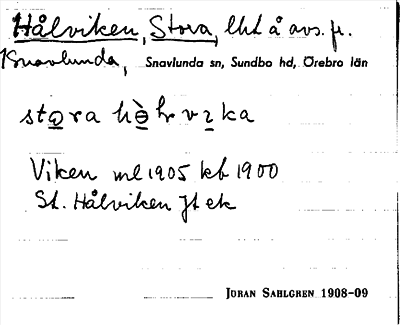 Hålviken, Stora, lht å avs. fr.
Knavlunda, Snavlunda sn, Sundbo hd, Örebro län
stora hò hr vıka
Viken ml 1905 kb 1900
St. Hålviken Jt ek
JÖRAN SAHLGREN 1908-09